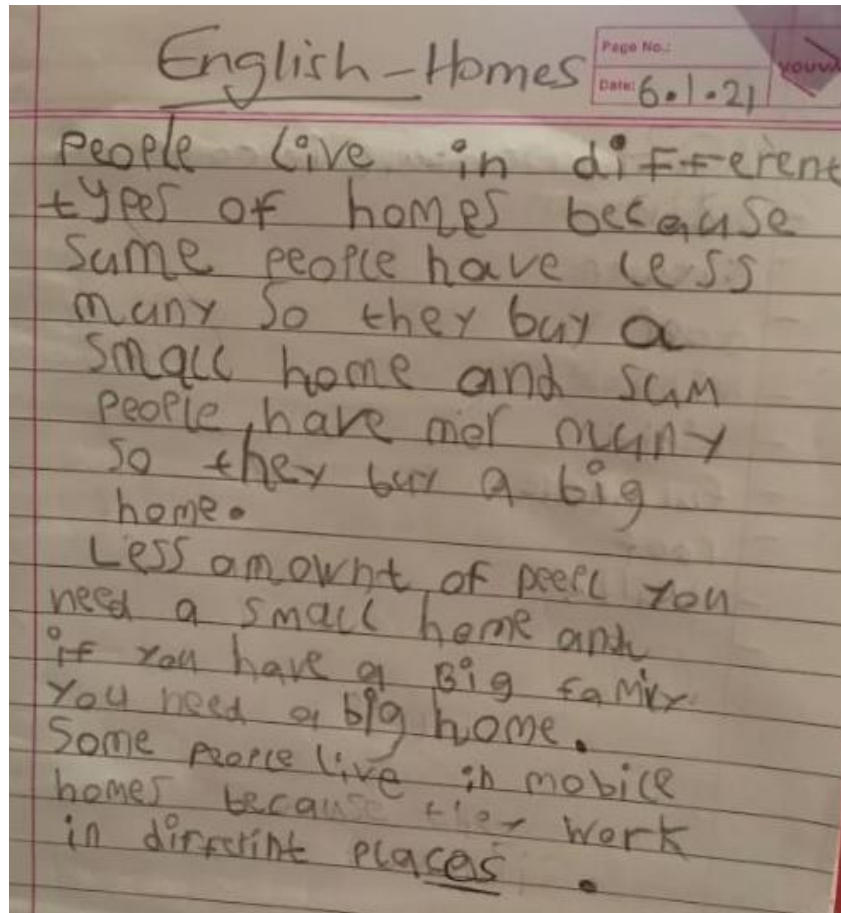 English - Homes
Page No.:
YOUVA
Date: 6.1.21
People live in different
types of homes because
sume people have less
muny so they buy a
small home and sum
people have mor muny
so they buy a big
home.
Less amownt of peepl you
need a small home and
if you have a Big family
you need a big home.
Some people live in mobile
homes because they work
in differint places.